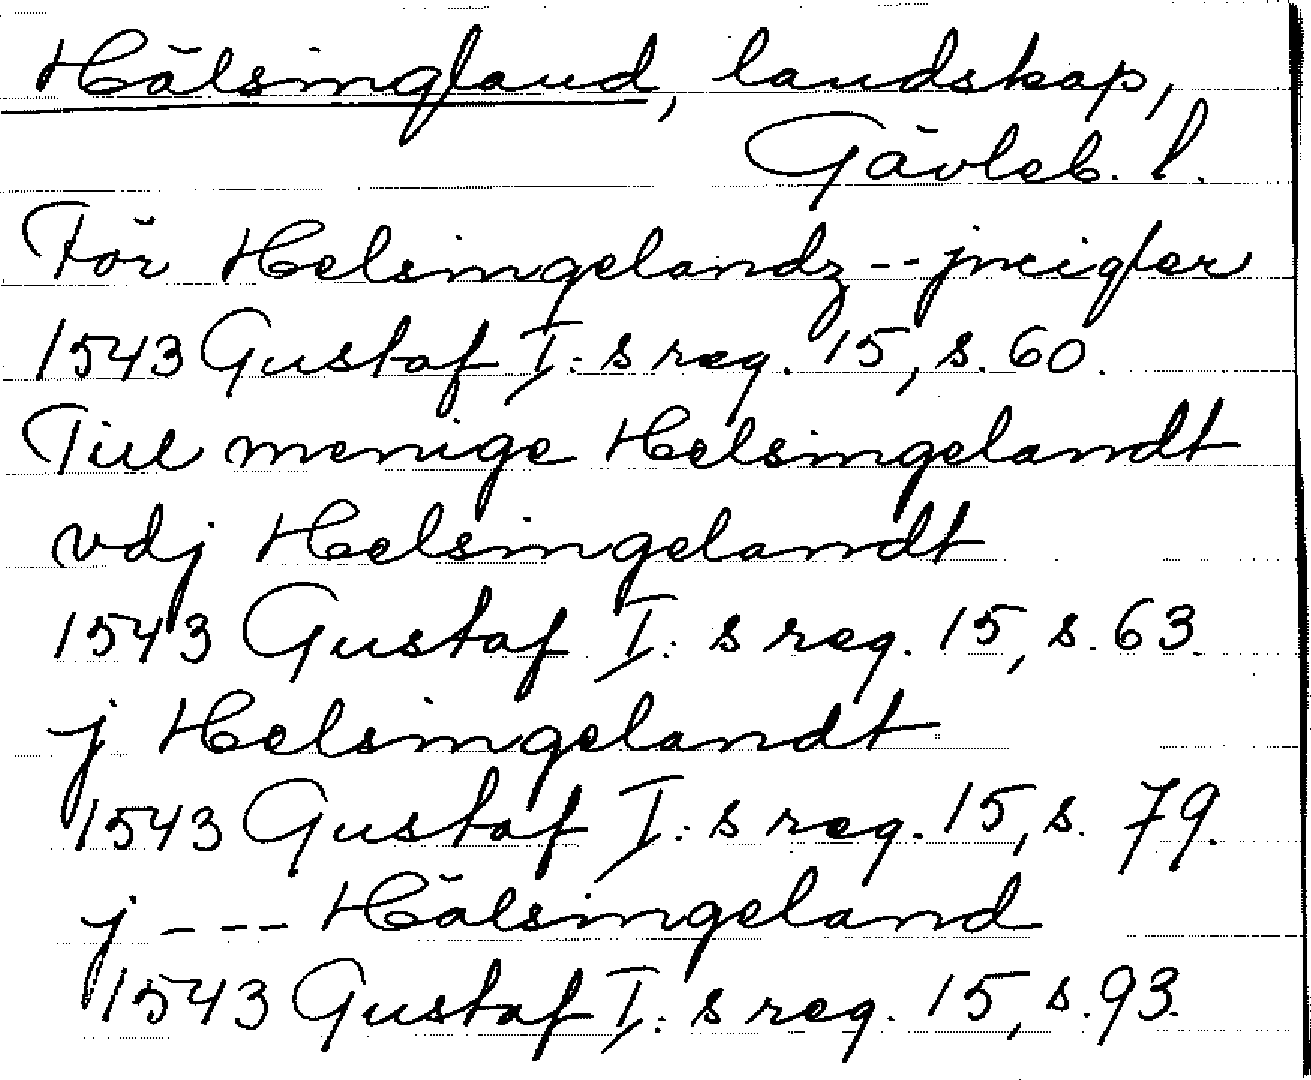 Hälsingland, landskap,
Gävleb. l.
För Helsingelandz -- jneigler
1543 Gustaf I:s reg. 15, s. 60.
Till menige Helsingelandt
vdj Helsingelandt
1543 Gustaf I:s reg. 15, s. 63.
j Helsingelandt
1543 Gustaf I:s reg. 15, s. 79.
j --- Hälsingeland
1543 Gustaf I:s reg. 15, s. 93.